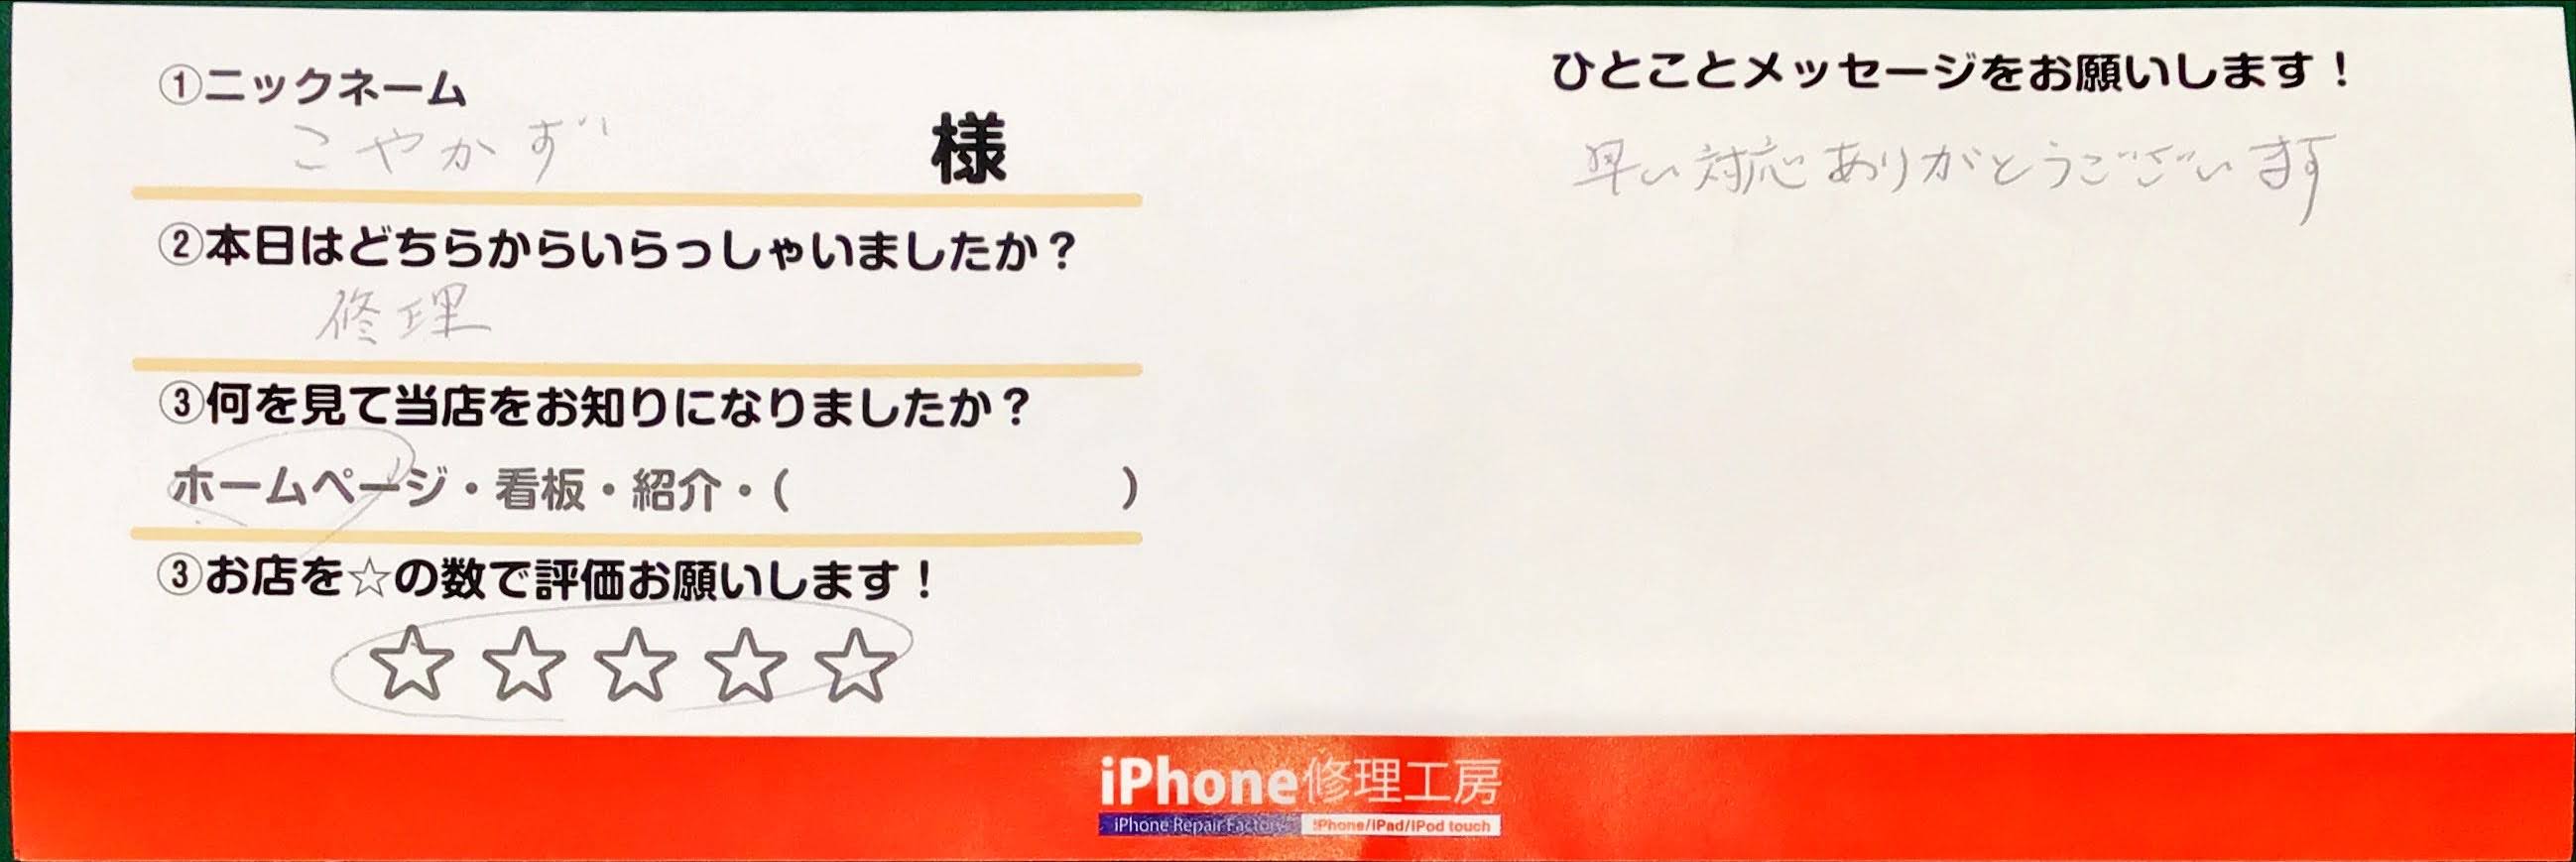 ①ニックネーム
こやかず 様
②本日はどちらからいらっしゃいましたか？
修理
③何を見て当店をお知りになりましたか？
ホームページ・看板・紹介・（ ）
③お店を☆の数で評価お願いします！
☆☆☆☆☆
ひとことメッセージをお願いします！
早い対応ありがとうございます
iPhone修理工房
iPhone Repair Factory iPhone/iPad/iPod touch